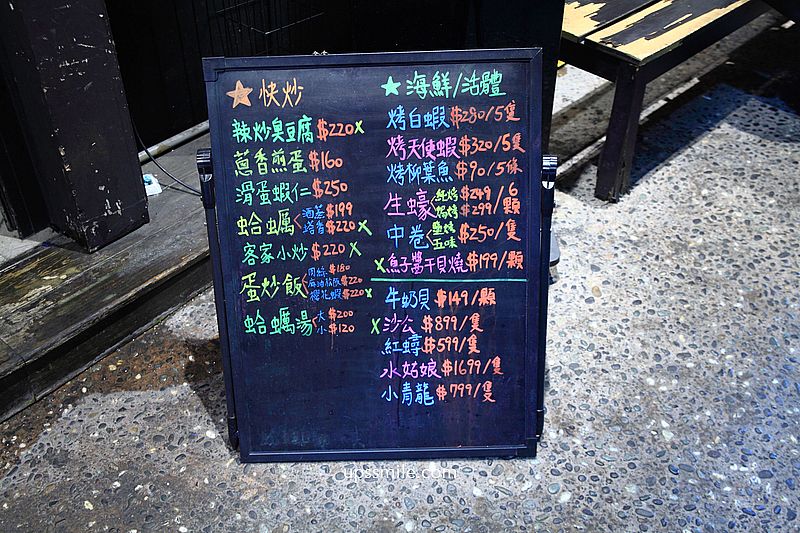 ★快炒
辣炒臭豆腐$220x
蔥香煎蛋$160
滑蛋蝦仁$250
蛤蠣<酒蒸$199
塔香$220x
客家小炒$220x
蛋炒飯<肉絲$180
麻油松阪$220
櫻花蝦$220x
蛤蠣湯<大$200
小$120
★海鮮/活體
烤白蝦$280/5隻
烤天使蝦$320/5隻
烤柳葉魚$90/5條
生蠔<純烤$249/6顆
焗烤$299
中卷<鹽烤$250/隻
五味
x魚子醬干貝燒$199/顆
牛奶貝$149/顆
x沙公$899/隻
紅蟳$599/隻
水姑娘$1699/隻
小青龍$799/隻
upssmile.com